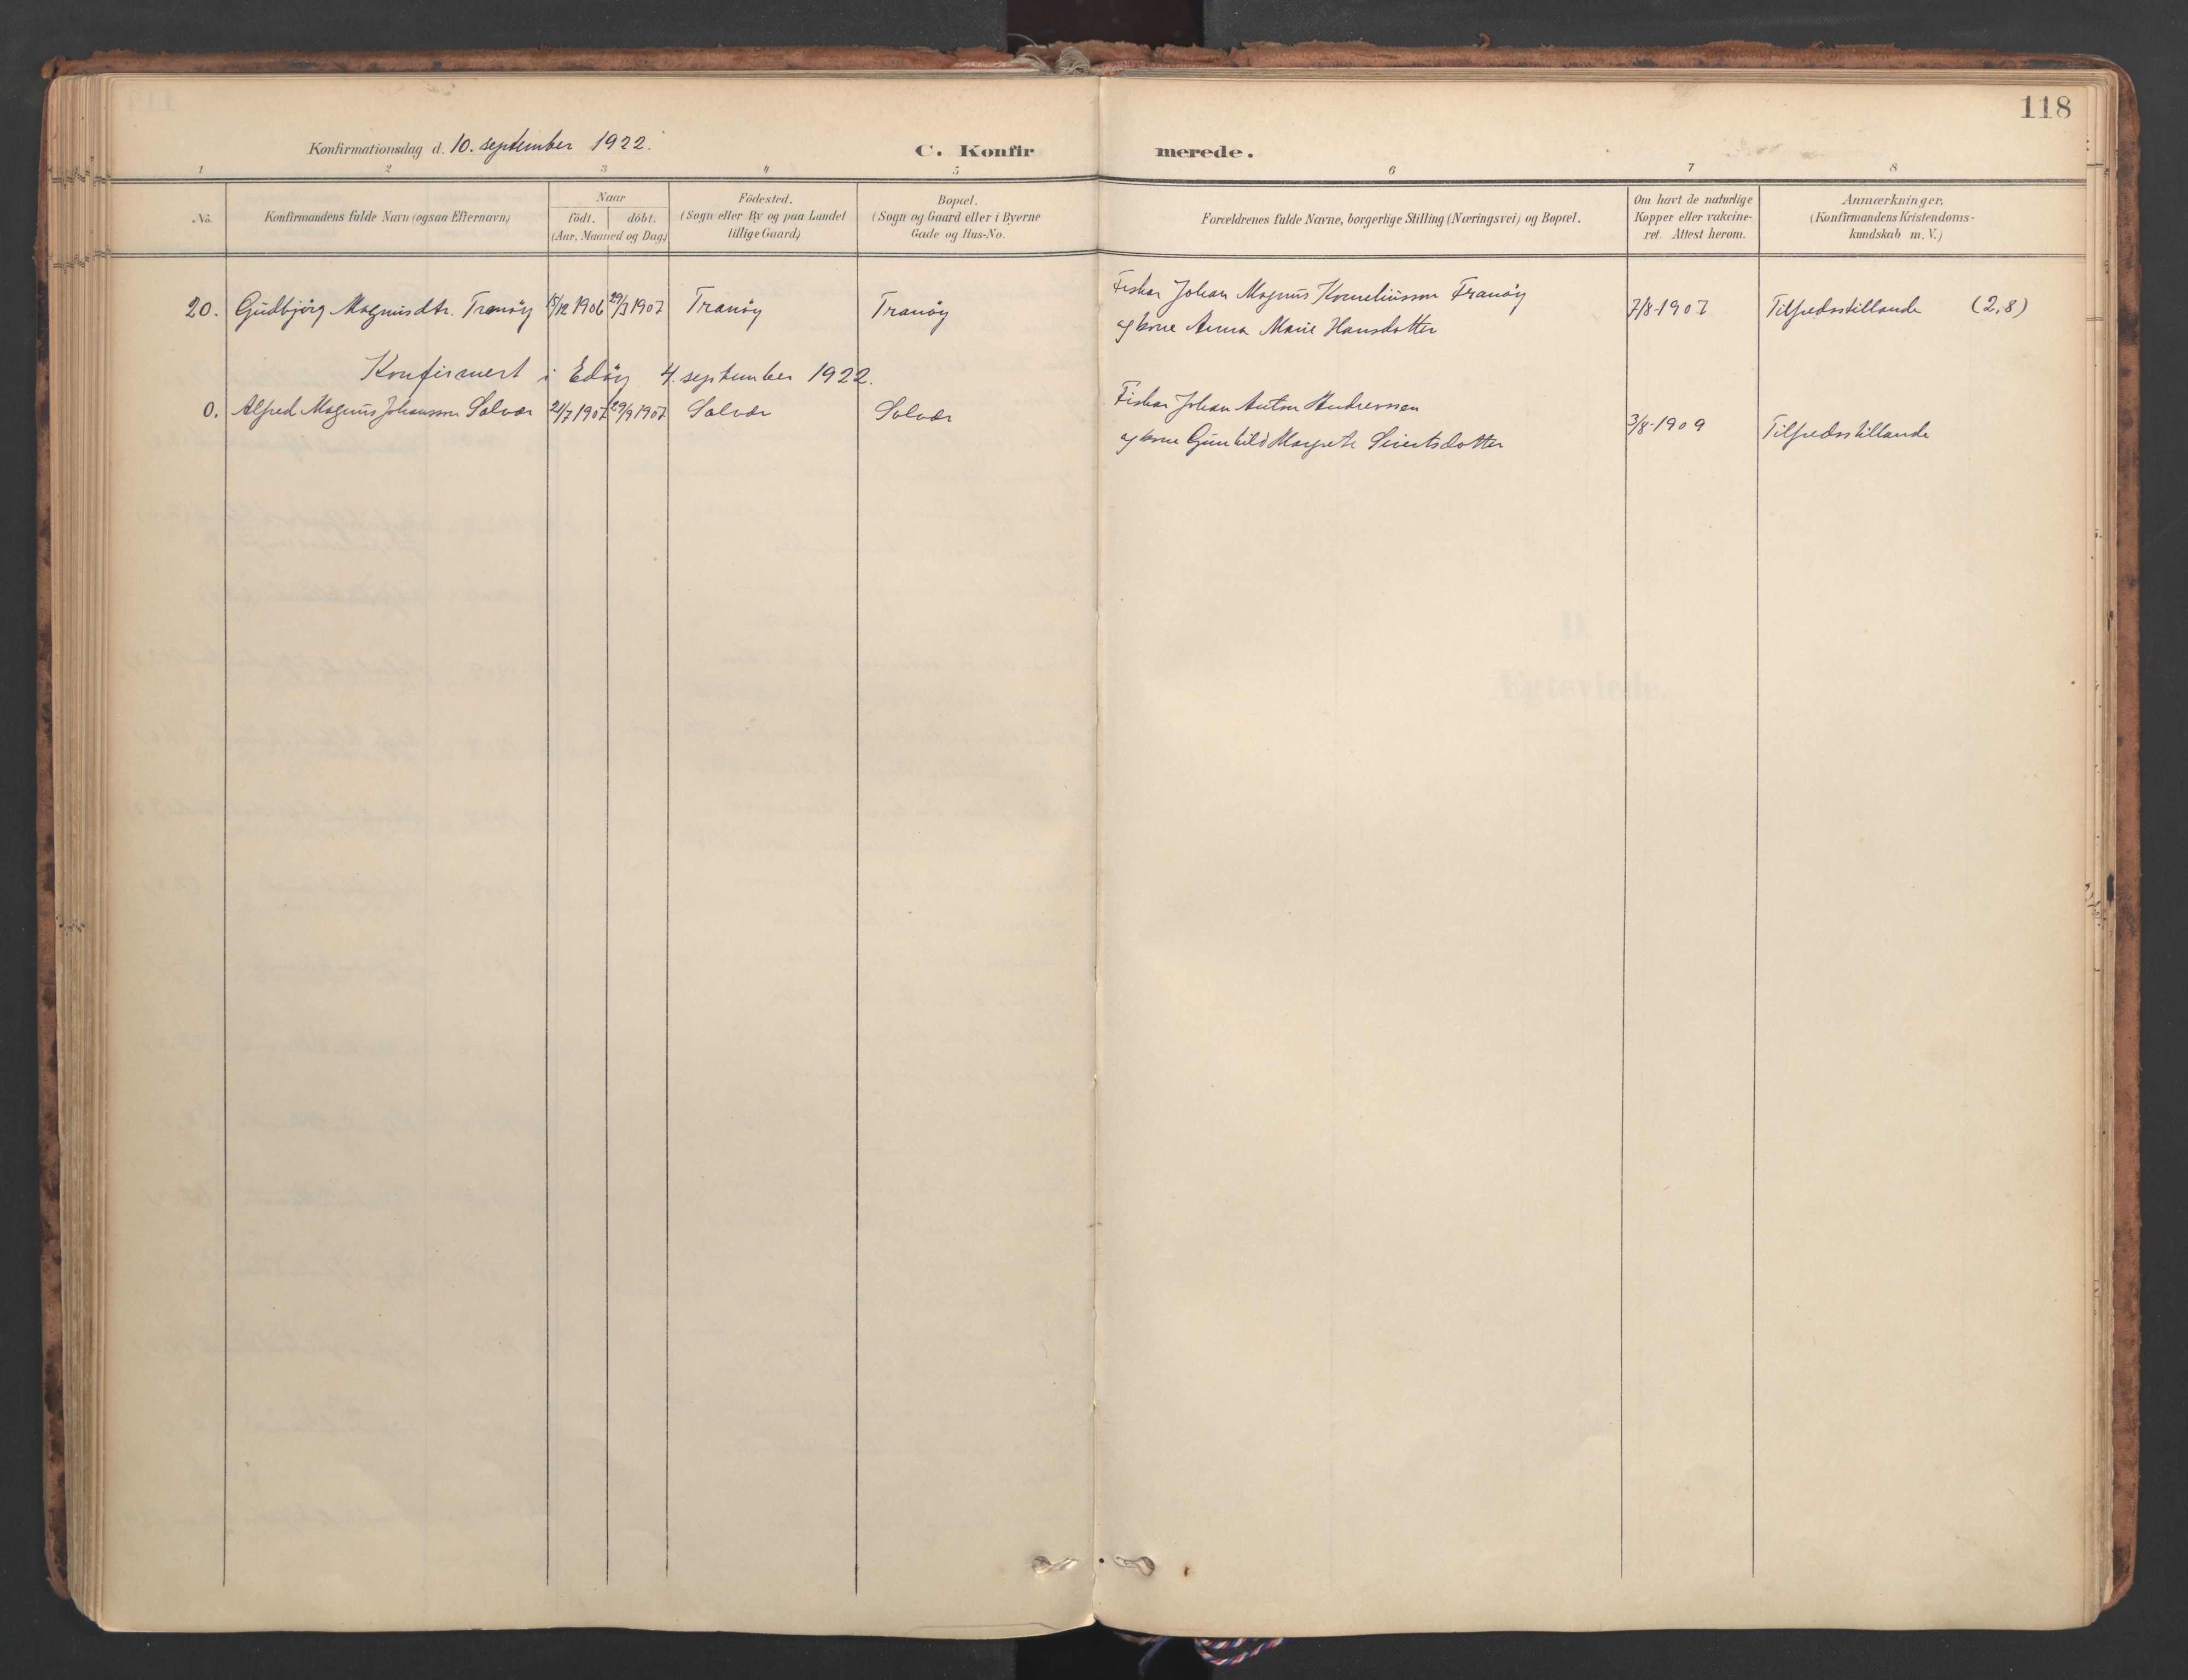 118
Konfirmationsdag d. 10. september 1922.
C. Konfirmerede.
1 2 3 4 5 6 7 8
No.
Konfirmandens fulde Navn (ogsaa Efternavn)
Naar
födt. döbt.
(Aar, Maaned og Dag)
Födested.
(Sogn eller By og paa Landet
tillige Gaard)
Bopæl.
(Sogn og Gaard eller i Byerne
Gade og Hus-No.
Forældrenes fulde Navne, borgerlige Stilling (Næringsvei) og Bopæl.
Om havt de naturlige
Kopper eller vakcine-
ret. Attest herom.
Anmærkninger.
(Konfirmandens Kristendoms-
kundskab m. V.)
20. Gudbjörg Magnusdtr. Tranöy 15/12 1906 29/3 1907 Tranöy Tranöy
Fiskar Johan Magnus Korneliusson Tranöy
og kone Anna Marie Hansdotter
7/8-1907 Tilfredsstillande (2,8)
Konfirmert i Edöy 4. september 1922.
0. Alfred Magnus Johansson Solvær 21/7 1907 29/9 1907 Solvær Solvær
Fiskar Johan Anton Andreassen
og kone Gunhild Margrete Sivertsdotter
3/8-1909 Tilfredsstillande